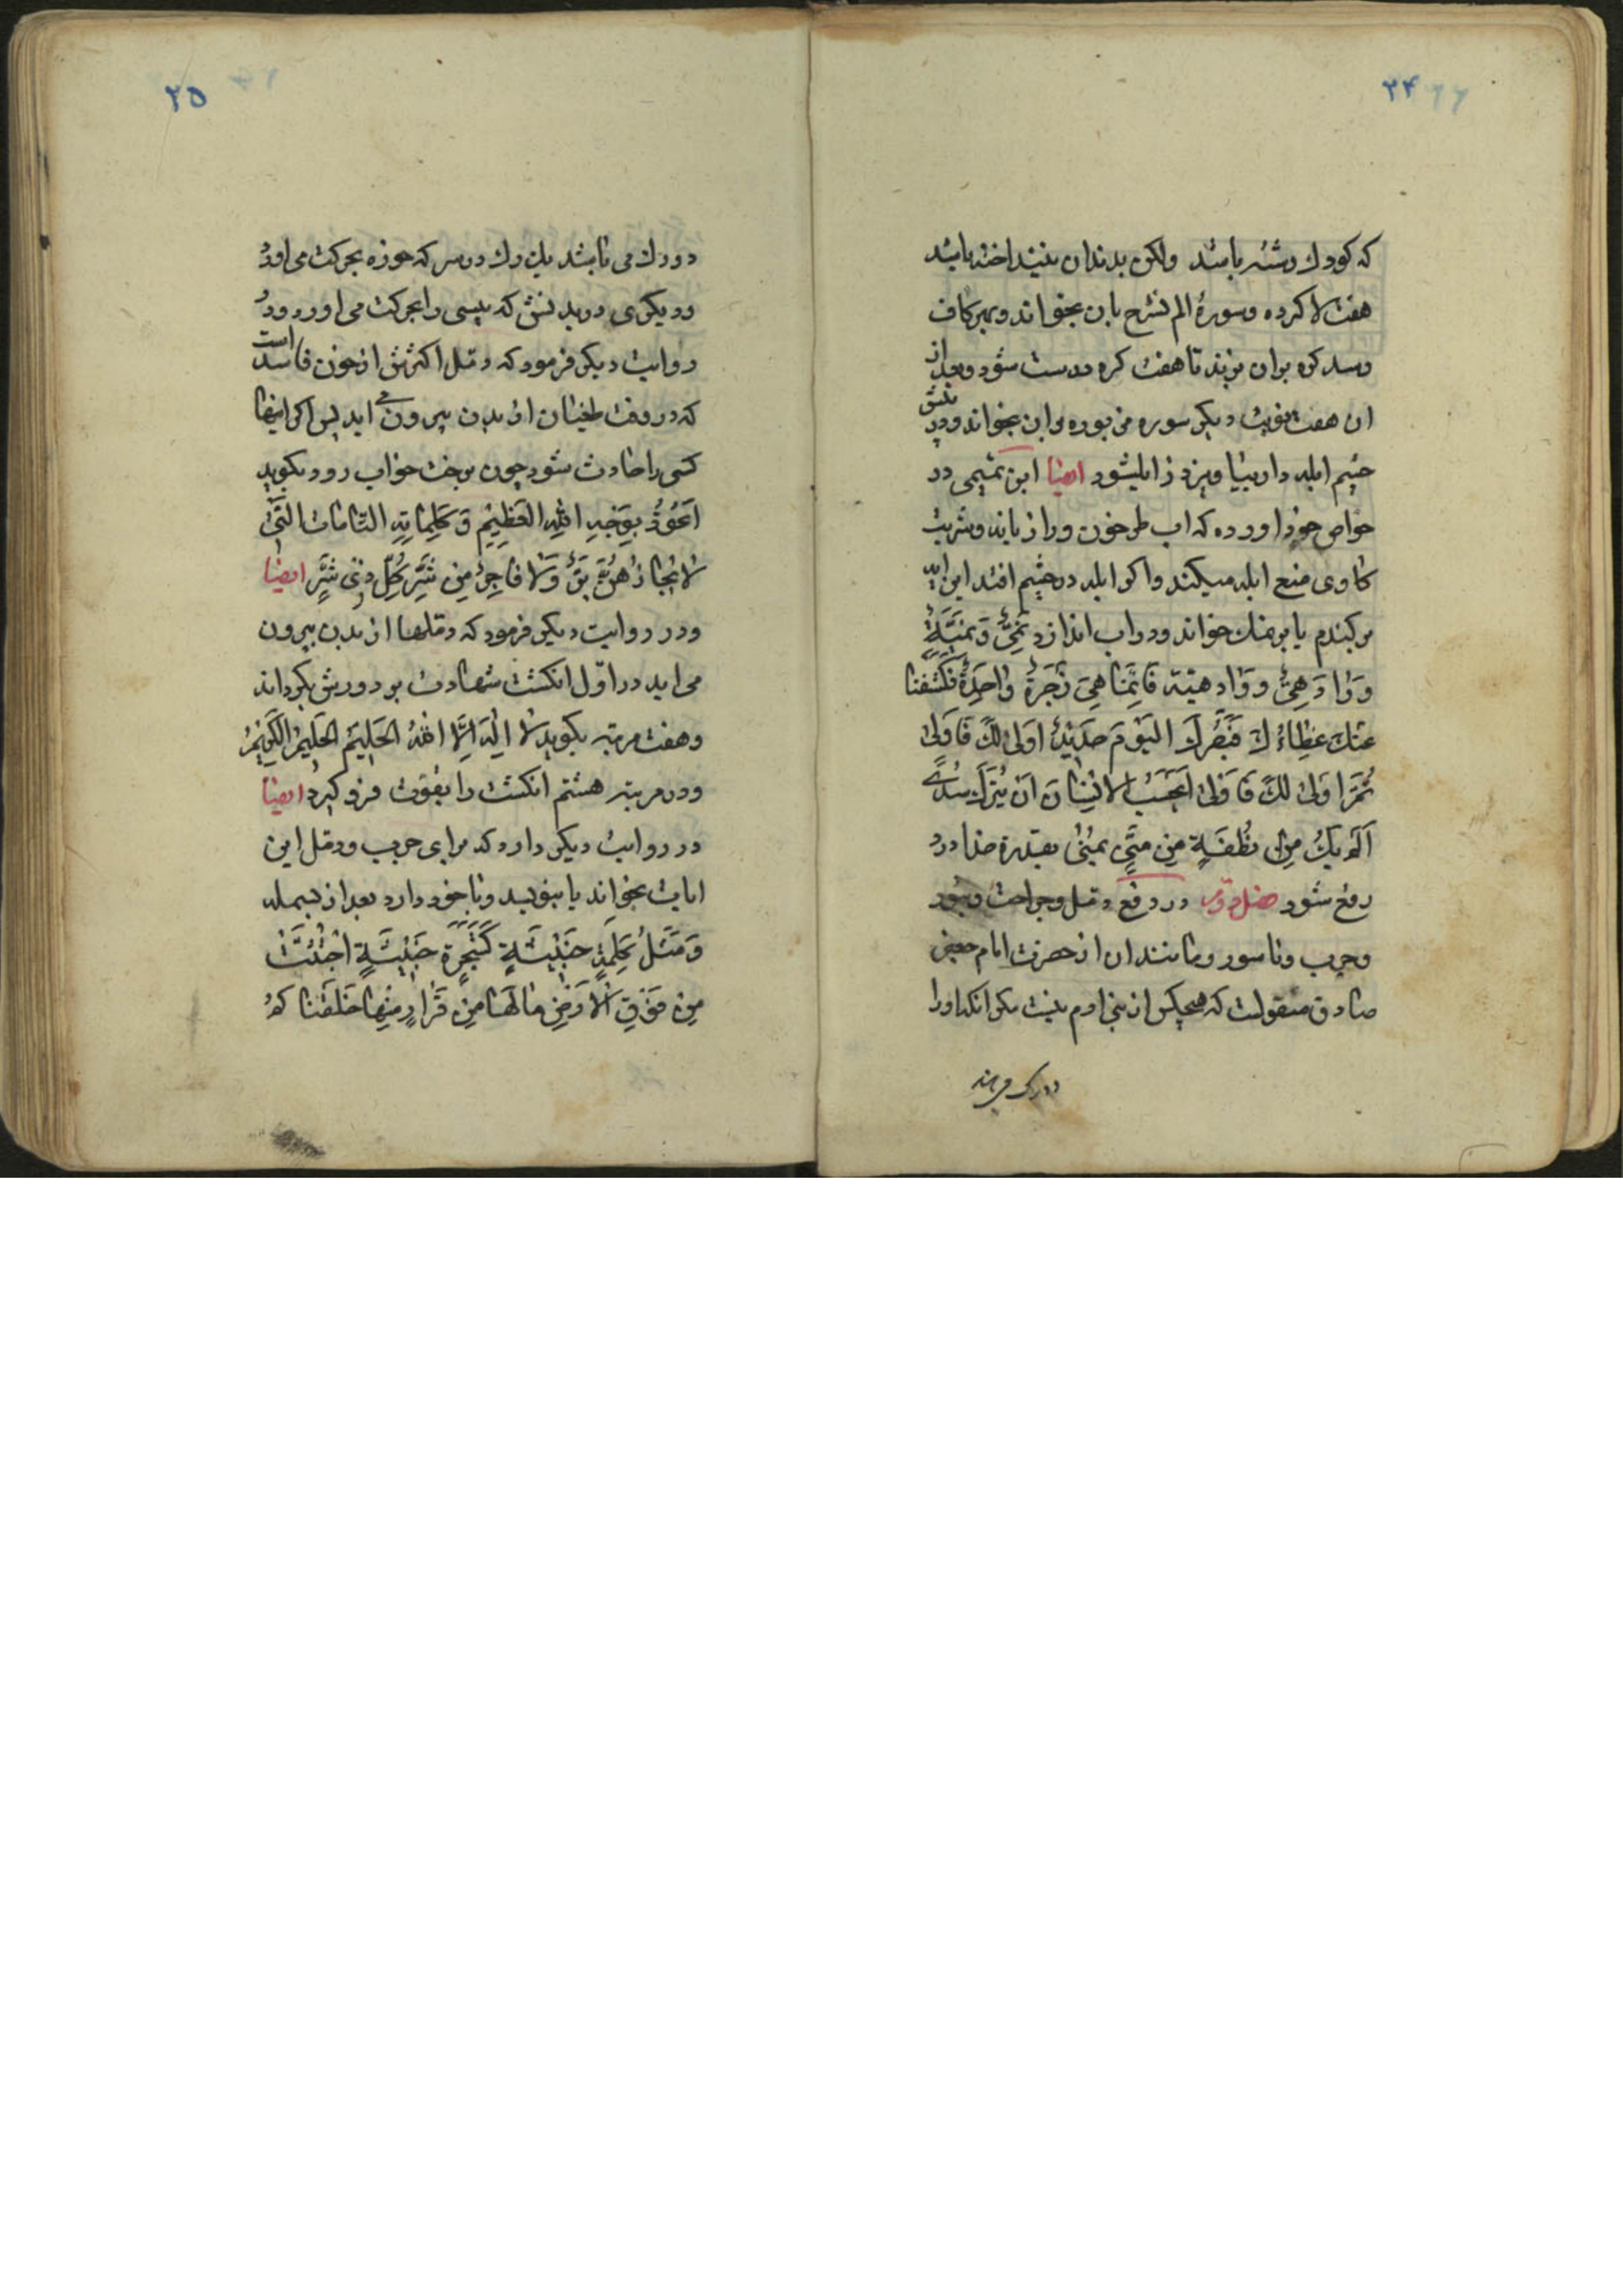 ۲۴
که کودک رشته باشد ولکن بدندان نینداخته باشد
هفت لا کرده وسورهٔ الم نشرح بان بخواند وبهر کاف
وسد کره بران بزند تا هفت کره درست شود وبعد از
ان هفت نوبت دیکر سوره مزبوره بران بخواند ودر
چشم ابله دار ویزد زایلشود ایضا ابن تمیمی در
خواص خود اورده که اب طرخون ورازیانه وشربت
کاوی منع ابله میکند واکر ابله در چشم افتد این ایه
بر کندم یا برنمک خواند ودر اب اندازد
فَاِنَّمَا هِیَ زَجْرَةٌ وَاحِدَةٌ فَکَشَفْنَا
عَنْكَ غِطَاءَكَ فَبَصَرُكَ الْیَوْمَ حَدِیْدٌ اَوْلٰی لَكَ فَاَوْلٰی
ثُمَّ اَوْلٰی لَكَ فَاَوْلٰی اَیَحْسَبُ الْاِنْسَانُ اَنْ یُتْرَكَ سُدًی
اَلَمْ یَكُ مِنْ نُطْفَةٍ مِنْ مَنِیٍّ یُمْنٰی بقدرة خدا درد
رفع شود فصل دوم در دفع دمل وجراحت وبثور
وجرب وناسور ومانند ان از حضرت امام جعفر
صادق منقولست که هیچکس از بنی ادم نیست مکر انکه اورا
دو رک
۲۵
دو رك می باشد یك رك در سر که خوره بحرکت می اورد
ودیکری در بدنش که پیسی را بحرکت می اورد ودر
روایت دیکر فرمود که دمل اکثرش از خون فاسد است
که در وقت طغیان از بدن بیرون می اید پس اکر اینها
کسی را حادث شود چون برخت خواب رود بکوید
اَعُوْذُ بِوَجْهِ اللهِ الْعَظِیْمِ وَ کَلِمَاتِهِ التَّامَّاتِ الَّتِیْ
لَا یُجَاوِزُهُنَّ بَرٌّ وَلَا فَاجِرٌ مِنْ شَرِّ کُلِّ ذِیْ شَرٍّ ایضا
ودر روایت دیکر فرمود که دملها از بدن بیرون
می اید در اوّل انکشت شهادت بر دورش بکرداند
وهفت مرتبه بکوید لَا اِلٰهَ اِلَّا اللهُ الْحَلِیْمُ الْکَرِیْمُ
ودر مرتبه هشتم انکشت را بقوت فرو کیرد ایضا
در روایت دیکر دارد که برای جرب ودمل این
ایات بخواند یا بنویسد وبا خود دارد بعد از بسمله
وَ مَثَلُ کَلِمَةٍ خَبِیْثَةٍ کَشَجَرَةٍ خَبِیْثَةٍ اجْتُثَّتْ
مِنْ فَوْقِ الْاَرْضِ مَا لَهَا مِنْ قَرَارٍ مِنْهَا خَلَقْنَاکُمْ